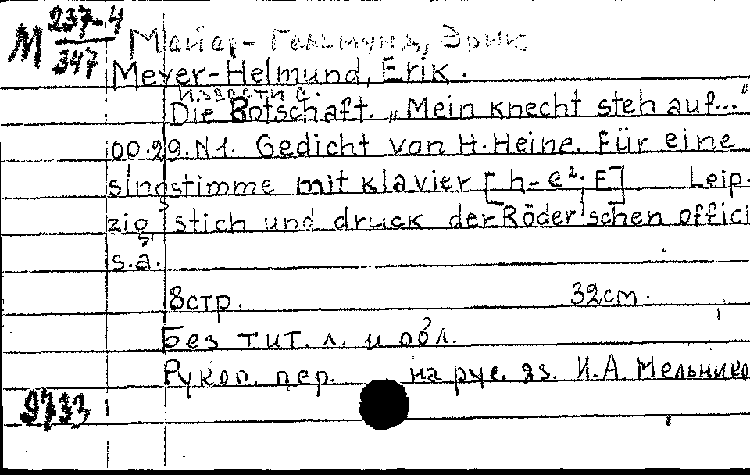 М 237-4
347
Майер-Гельмунд, Эрик
Meyer-Helmund, Erik.
Die Botschaft. „Mein knecht steh auf..."
oo.29.N1. Gedicht von H. Heine. Für eine
singstimme mit klavier [h-e²; F] Leip-
zig stich und druck der Röder'schen offici
s.a.
8стр. 32см.
Без тит. л. и обл.
Рукоп. пер. на рус. яз. И.А. Мельнико
9733